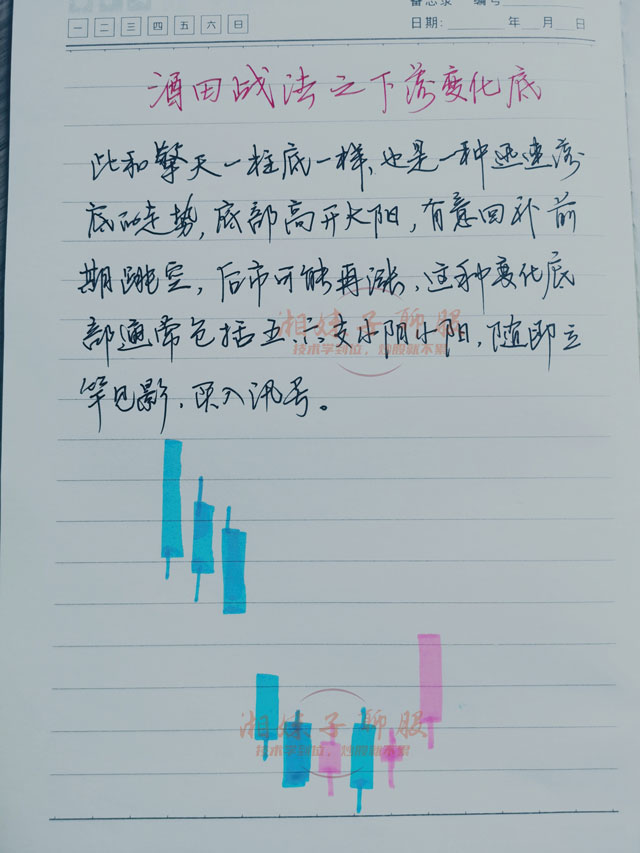 备忘录 编号
一 二 三 四 五 六 日
日期: 年 月 日
酒田战法之下落变化底
此和擎天一柱底一样,也是一种迅速落
底的走势,底部高开大阳,有意回补前
期跳空,后市可能再涨,这种变化底
部通常包括五、六支小阴小阳,随即立
竿见影,买入讯号。
湘妹子聊股
技术学到位,炒股就不累
湘妹子聊股
技术学到位,炒股就不累